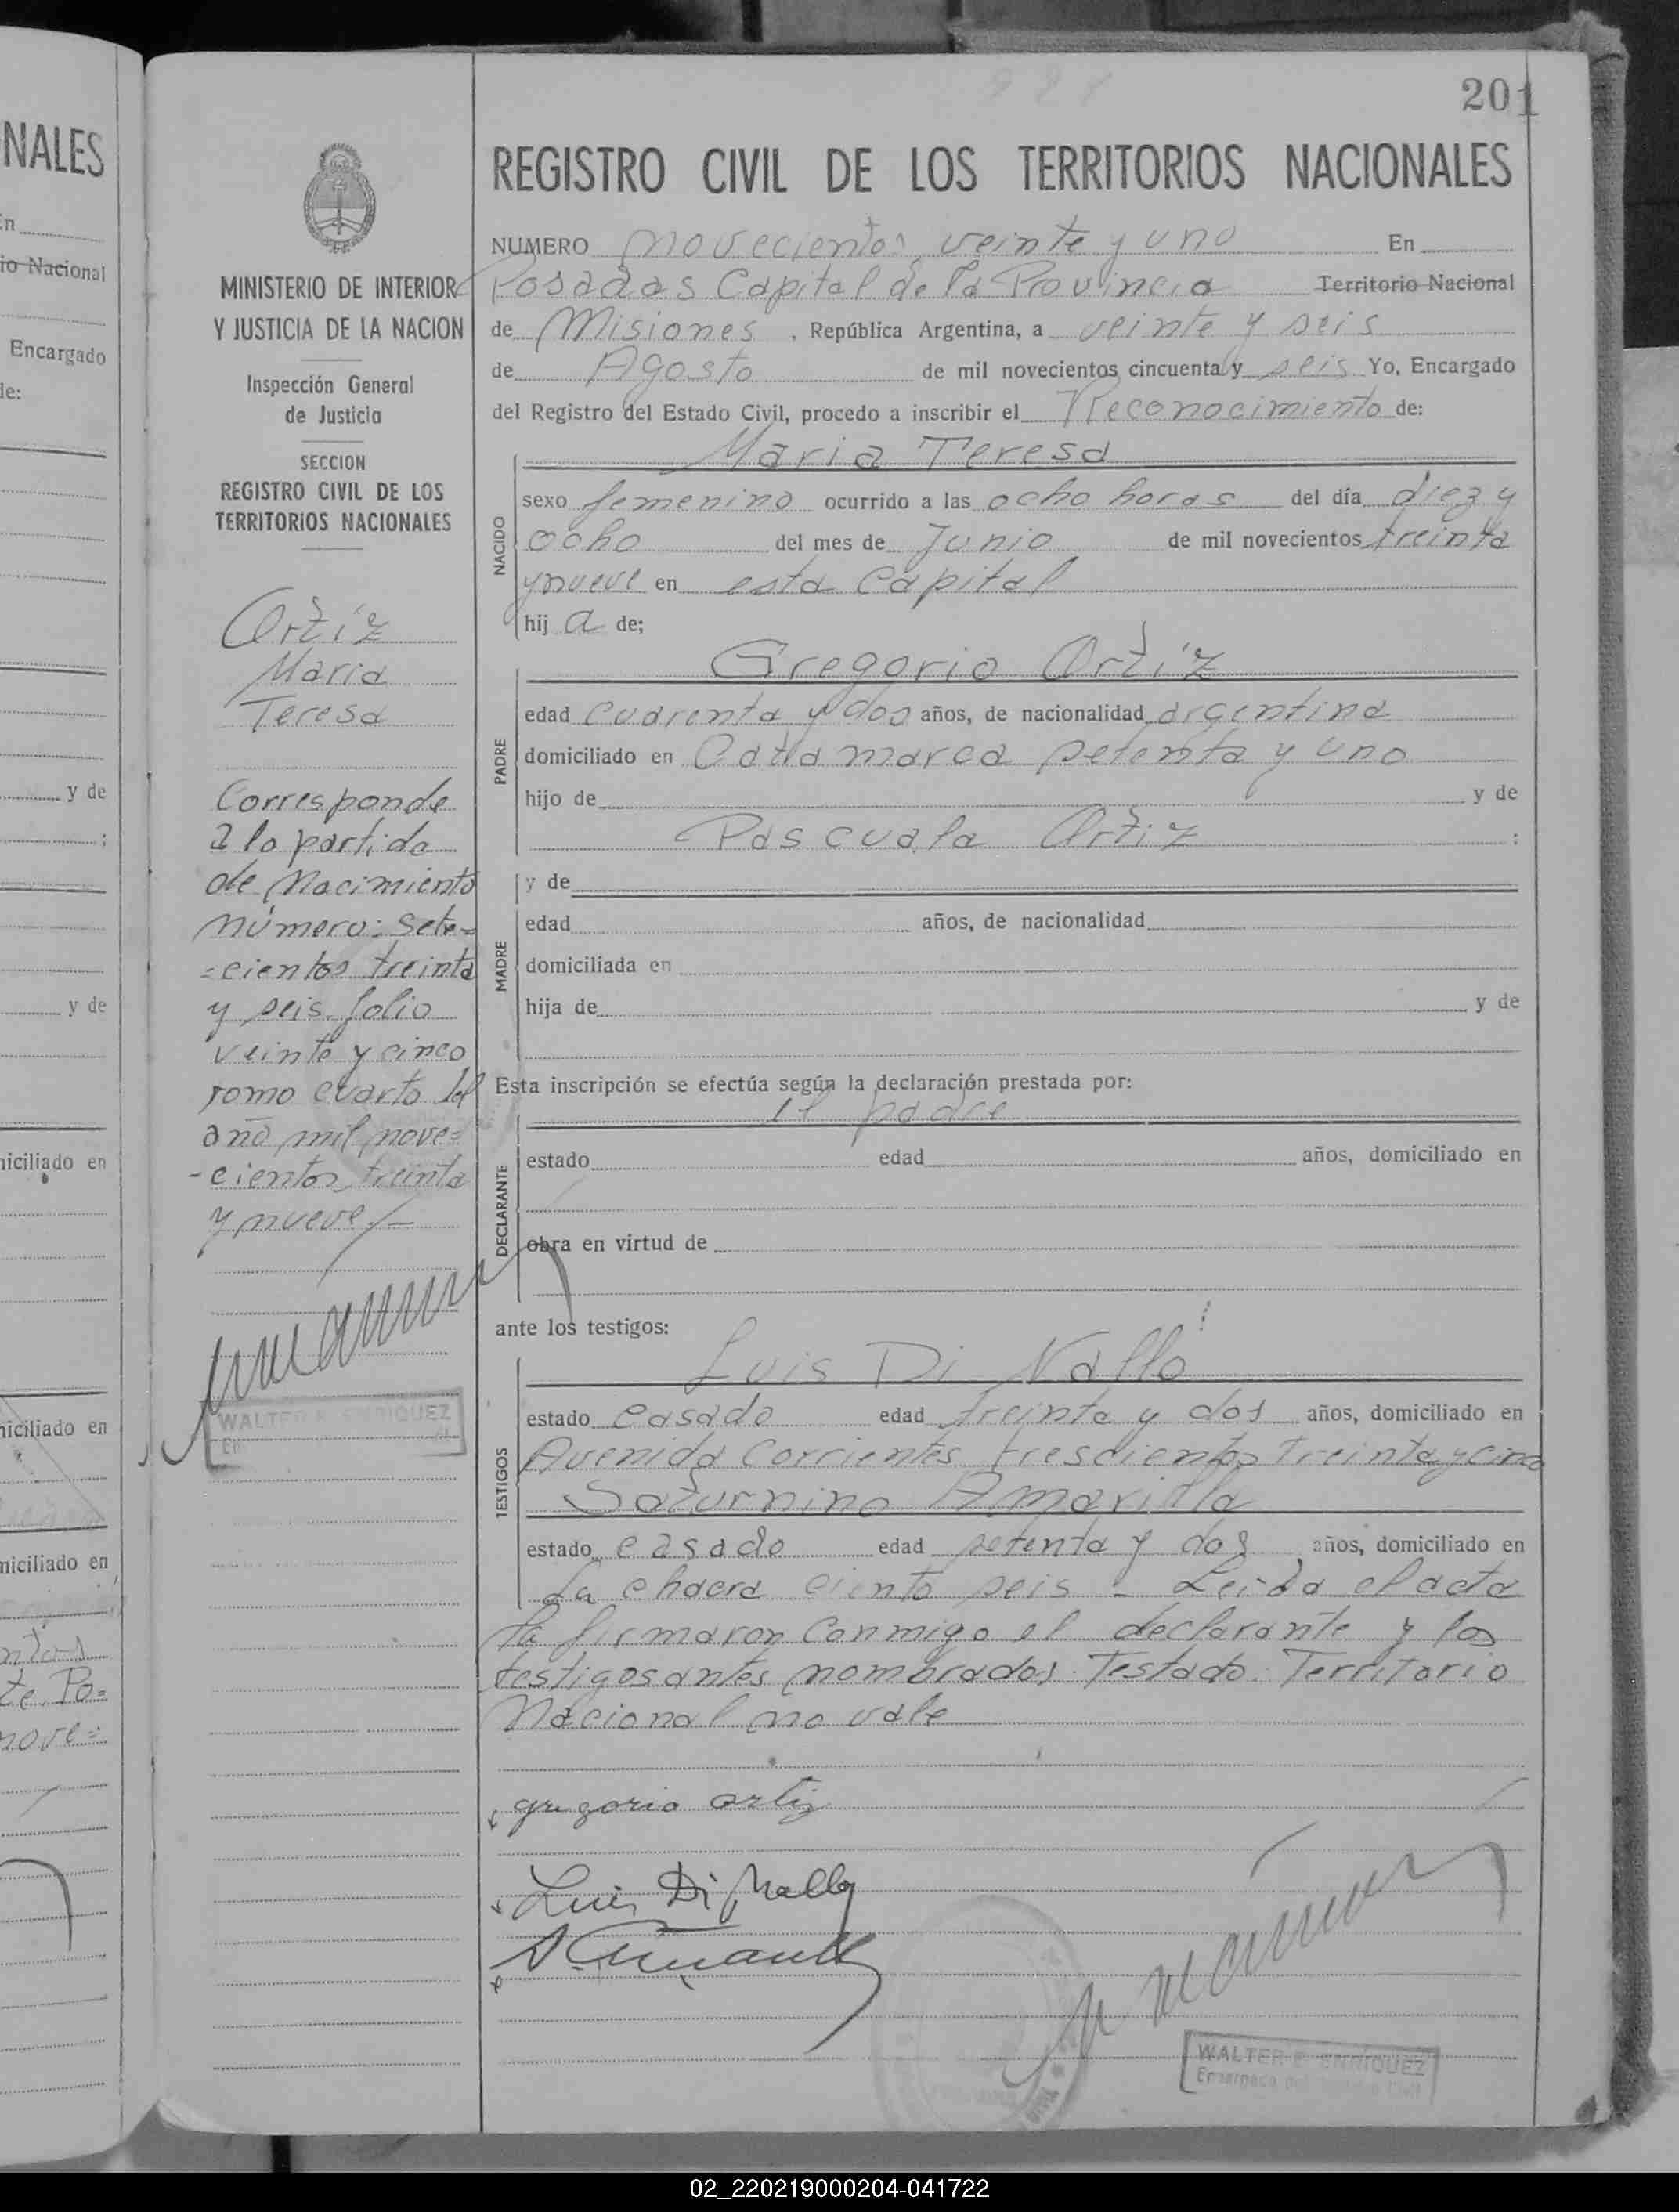 201
NALES
En
io Nacional
Encargado
de:
y de
;
y de
niciliado en
niciliado en
niciliado en
ntos
te Po=
nove=
MINISTERIO DE INTERIOR
Y JUSTICIA DE LA NACION
Inspección General
de Justicia
SECCION
REGISTRO CIVIL DE LOS
TERRITORIOS NACIONALES
Ortiz
Maria
Teresa
Corresponde
a la partida
de Nacimiento
número: sete=
=cientos treinta
y seis folio
veinte y cinco
tomo cuarto del
año mil nove=
-cientos treinta
y nueve/-
WALTER E. ENRIQUEZ
REGISTRO CIVIL DE LOS TERRITORIOS NACIONALES
NUMERO novecientos veinte y uno En
Posadas Capital de la Provincia Territorio Nacional
de Misiones , República Argentina, a veinte y seis
de Agosto de mil novecientos cincuenta y seis Yo, Encargado
del Registro del Estado Civil, procedo a inscribir el Reconocimiento de:
Maria Teresa
NACIDO
sexo femenino ocurrido a las ocho horas del día diez y
ocho del mes de Junio de mil novecientos treinta
y nueve en esta Capital
hij a de;
Gregorio Ortiz
PADRE
edad cuarenta y dos años, de nacionalidad argentina
domiciliado en Catamarca setenta y uno
hijo de y de
Pascuala Ortiz :
y de
MADRE
edad años, de nacionalidad
domiciliada en
hija de y de
Esta inscripción se efectúa según la declaración prestada por:
el padre
DECLARANTE
estado edad años, domiciliado en
obra en virtud de
ante los testigos:
Luis Di Nallo
TESTIGOS
estado casado edad treinta y dos años, domiciliado en
Avenida Corrientes trescientos treinta y cinco
Saturnino Amarilla
estado casado edad setenta y dos años, domiciliado en
La chacra ciento seis - Leida el acta
la firmaron conmigo el declarante y los
testigos antes nombrados. Testado: Territorio
Nacional no vale
gregorio ortiz
Luis Di Nallo
WALTER E. ENRIQUEZ
Encargado del Registro Civil
02_220219000204-041722